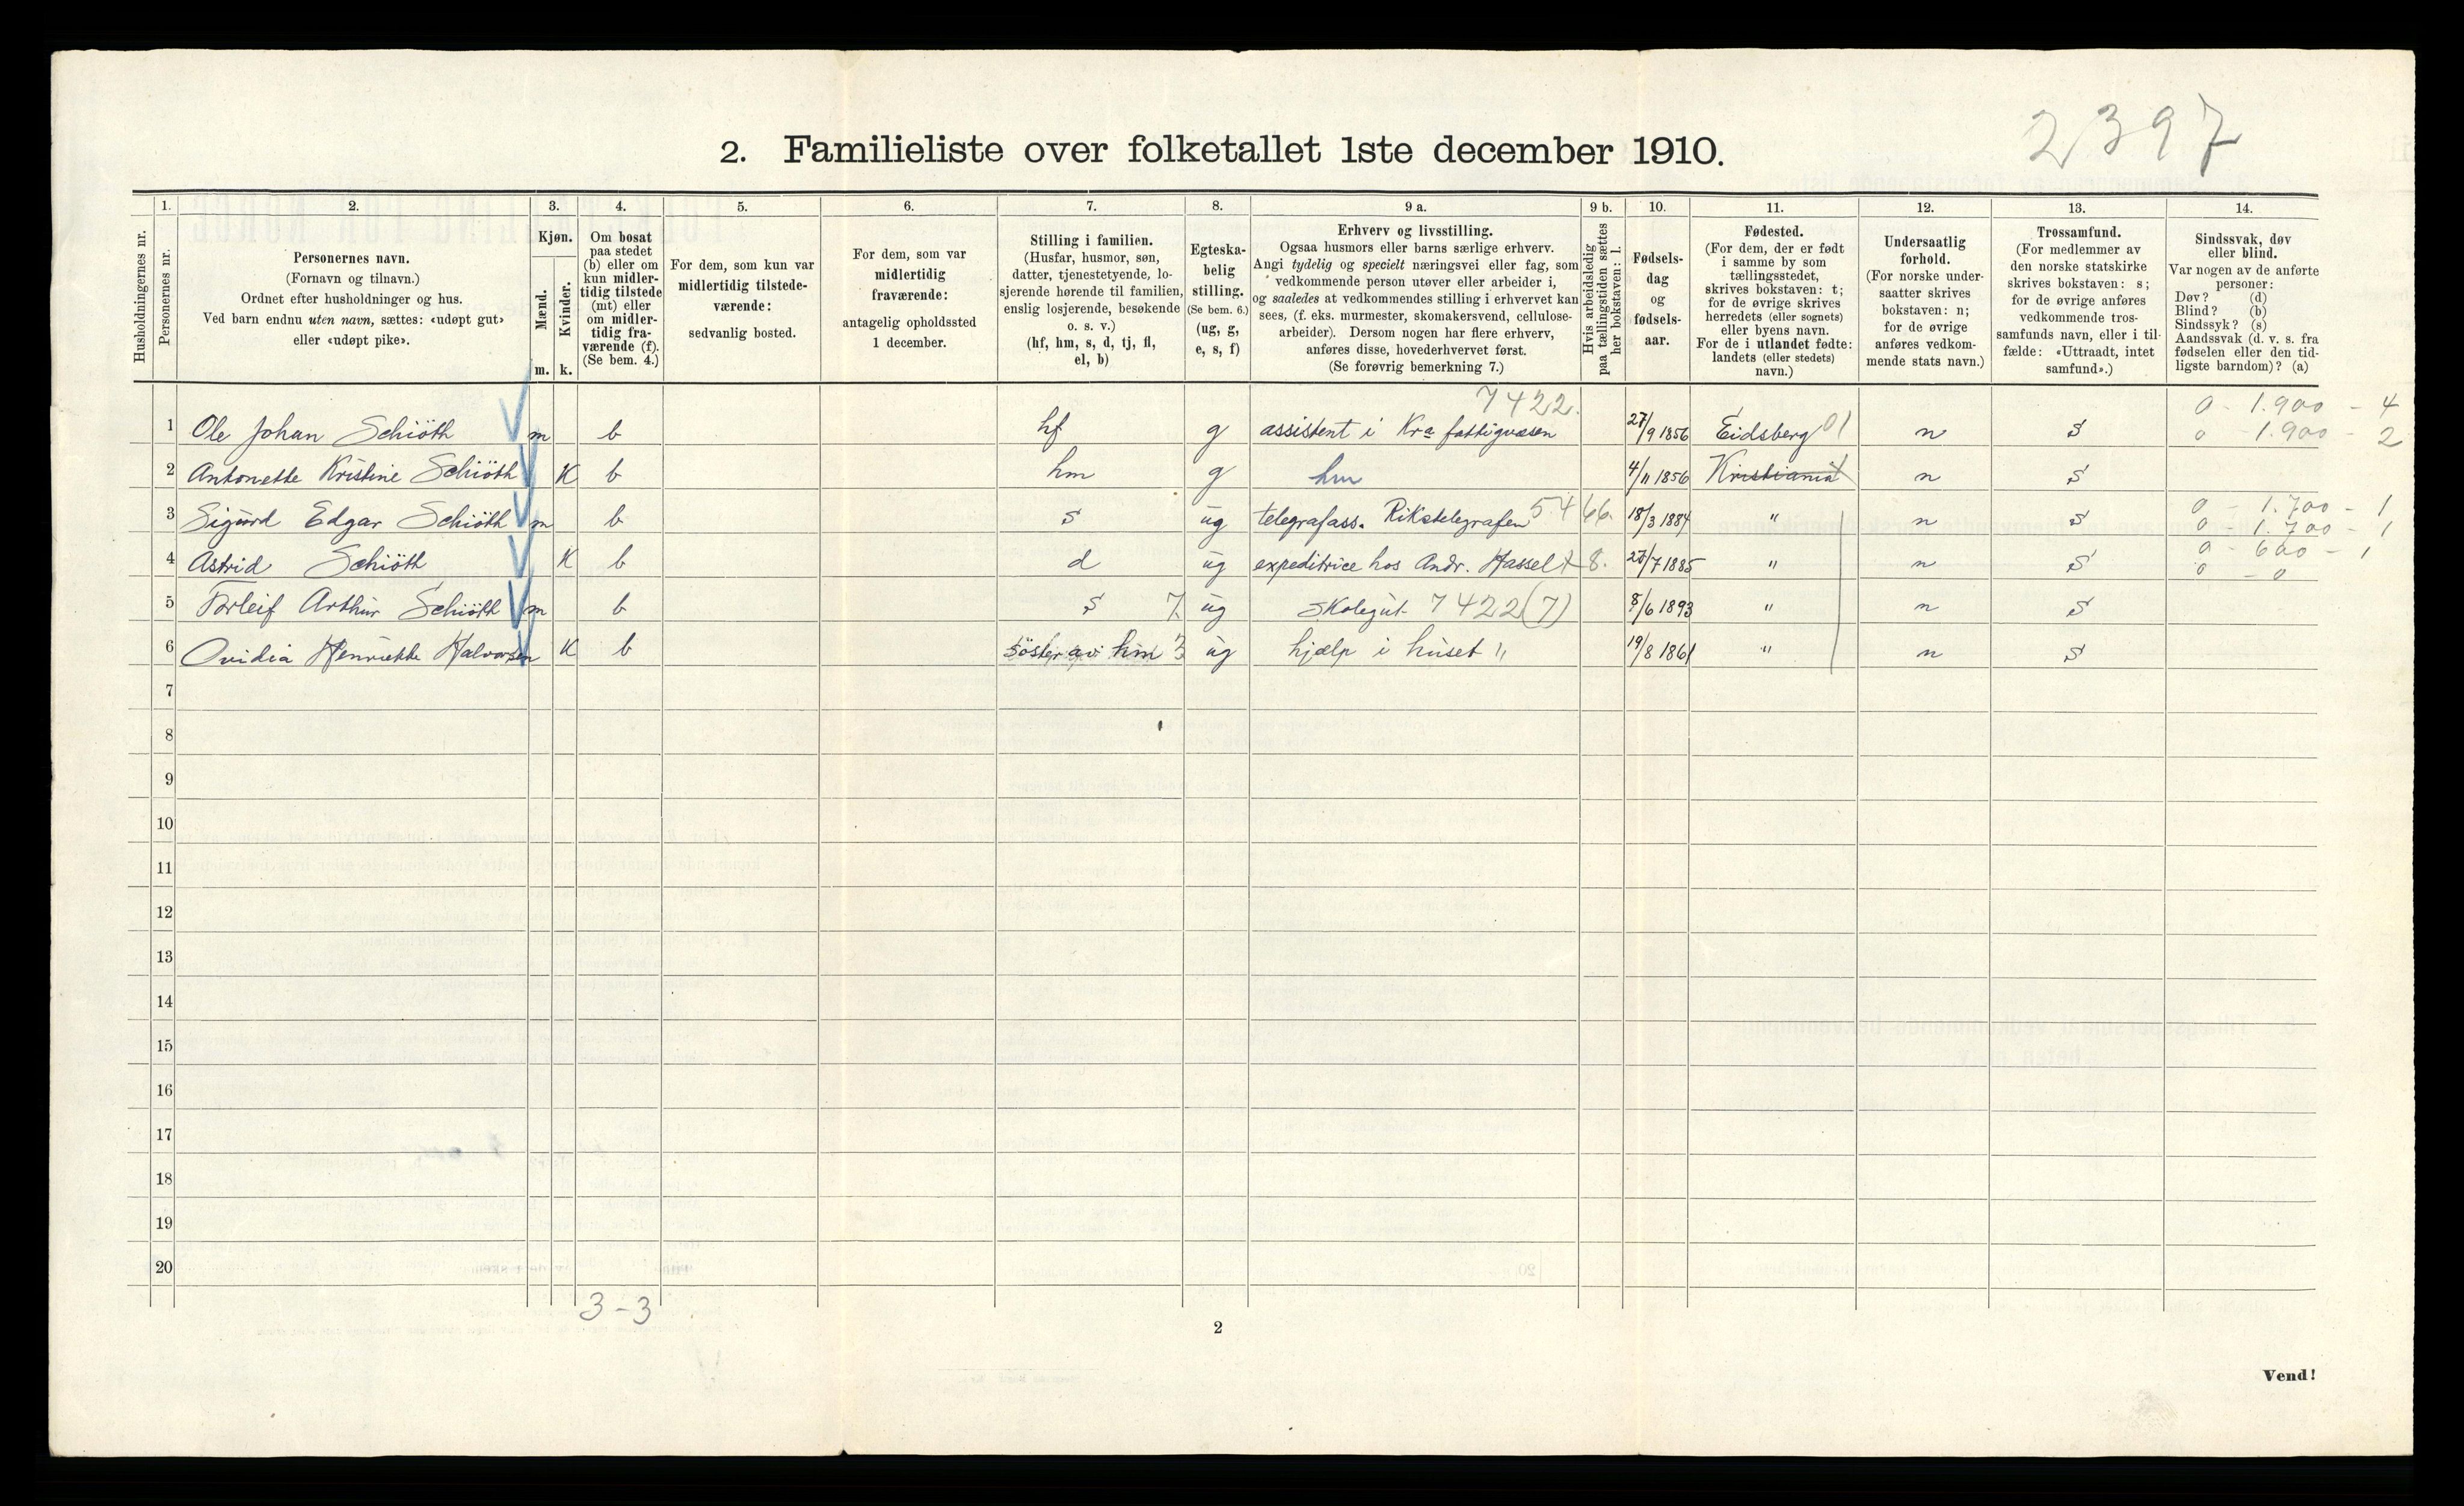 2397
2. Familieliste over folketallet 1ste december 1910.
Husholdningernes nr.
1. Personernes nr.
2. Personernes navn.
(Fornavn og tilnavn.)
Ordnet efter husholdninger og hus.
Ved barn endnu uten navn, sættes: «udøpt gut»
eller «udøpt pike».
3. Kjøn.
Mænd. m.
Kvinder. k.
4. Om bosat
paa stedet
(b) eller om
kun midler-
tidig tilstede
(mt) eller
om midler-
tidig fra-
værende (f).
(Se bem. 4.)
5. For dem, som kun var
midlertidig tilstede-
værende:
sedvanlig bosted.
6. For dem, som var
midlertidig
fraværende:
antagelig opholdssted
1 december.
7. Stilling i familien.
(Husfar, husmor, søn,
datter, tjenestetyende, lo-
sjerende hørende til familien,
enslig losjerende, besøkende
o. s. v.)
(hf, hm, s, d, tj, fl,
el, b)
8. Egteska-
belig
stilling.
(Se bem. 6.)
(ug, g,
e, s, f)
9 a. Erhverv og livsstilling.
Ogsaa husmors eller barns særlige erhverv.
Angi tydelig og specielt næringsvei eller fag, som
vedkommende person utøver eller arbeider i,
og saaledes at vedkommendes stilling i erhvervet kan
sees, (f. eks. murmester, skomakersvend, cellulose-
arbeider). Dersom nogen har flere erhverv,
anføres disse, hovederhvervet først.
(Se forøvrig bemerkning 7.)
9 b. Hvis arbeidsledig
paa tællingstiden sættes
her bokstaven: l.
10. Fødsels-
dag
og
fødsels-
aar.
11. Fødested.
(For dem, der er født
i samme by som
tællingsstedet,
skrives bokstaven: t;
for de øvrige skrives
herredets (eller sognets)
eller byens navn.
For de i utlandet fødte:
landets (eller stedets)
navn.)
12. Undersaatlig
forhold.
(For norske under-
saatter skrives
bokstaven: n;
for de øvrige
anføres vedkom-
mende stats navn.)
13. Trossamfund.
(For medlemmer av
den norske statskirke
skrives bokstaven: s;
for de øvrige anføres
vedkommende tros-
samfunds navn, eller i til-
fælde: «Uttraadt, intet
samfund».)
14. Sindssvak, døv
eller blind.
Var nogen av de anførte
personer:
Døv? (d)
Blind? (b)
Sindssyk? (s)
Aandssvak (d. v. s. fra
fødselen eller den tid-
ligste barndom)? (a)
7422. 0 - 1.900 - 4
1 Ole Johan Schiöth m b hf g assistent i Kra fattigvæsen 27/9 1856 Eidsberg 01 n s 0 - 1.900 - 2
2 Antonette Kristine Schiöth K b hm g hm 4/11 1856 Kristiania t n s
3 Sigurd Edgar Schiöth m b s ug telegrafass. Rikstelegrafen 5466. 18/3 1884 " n s 0 - 1.700 - 1
0 - 1.700 - 1
4 Astrid Schiöth K b d ug expeditrice hos Andr. Hassel 8. /7 1885 " n s 0 - 600 - 1
0 - 0
5 Torleif Arthur Schiöth m b s 7. ug skolegut 7422(7) 8/6 1893 " n s
6 Ovidia Henriette Halvorsen K b söster av hm 3 ug hjælp i huset " 19/8 1861 " n s
7
8
9
10
11
12
13
14
15
16
17
18
19
20
3-3
2
Vend!